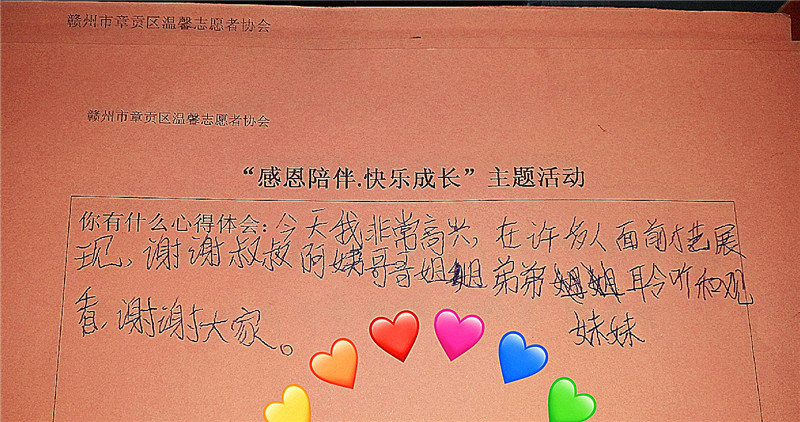 赣州市章贡区温馨志愿者协会
赣州市章贡区温馨志愿者协会
“感恩陪伴.快乐成长”主题活动
你有什么心得体会:今天我非常高兴,在许多人面前才艺展
现,谢谢叔叔阿姨哥哥姐姐弟弟聆听和观
看,谢谢大家。
妹妹